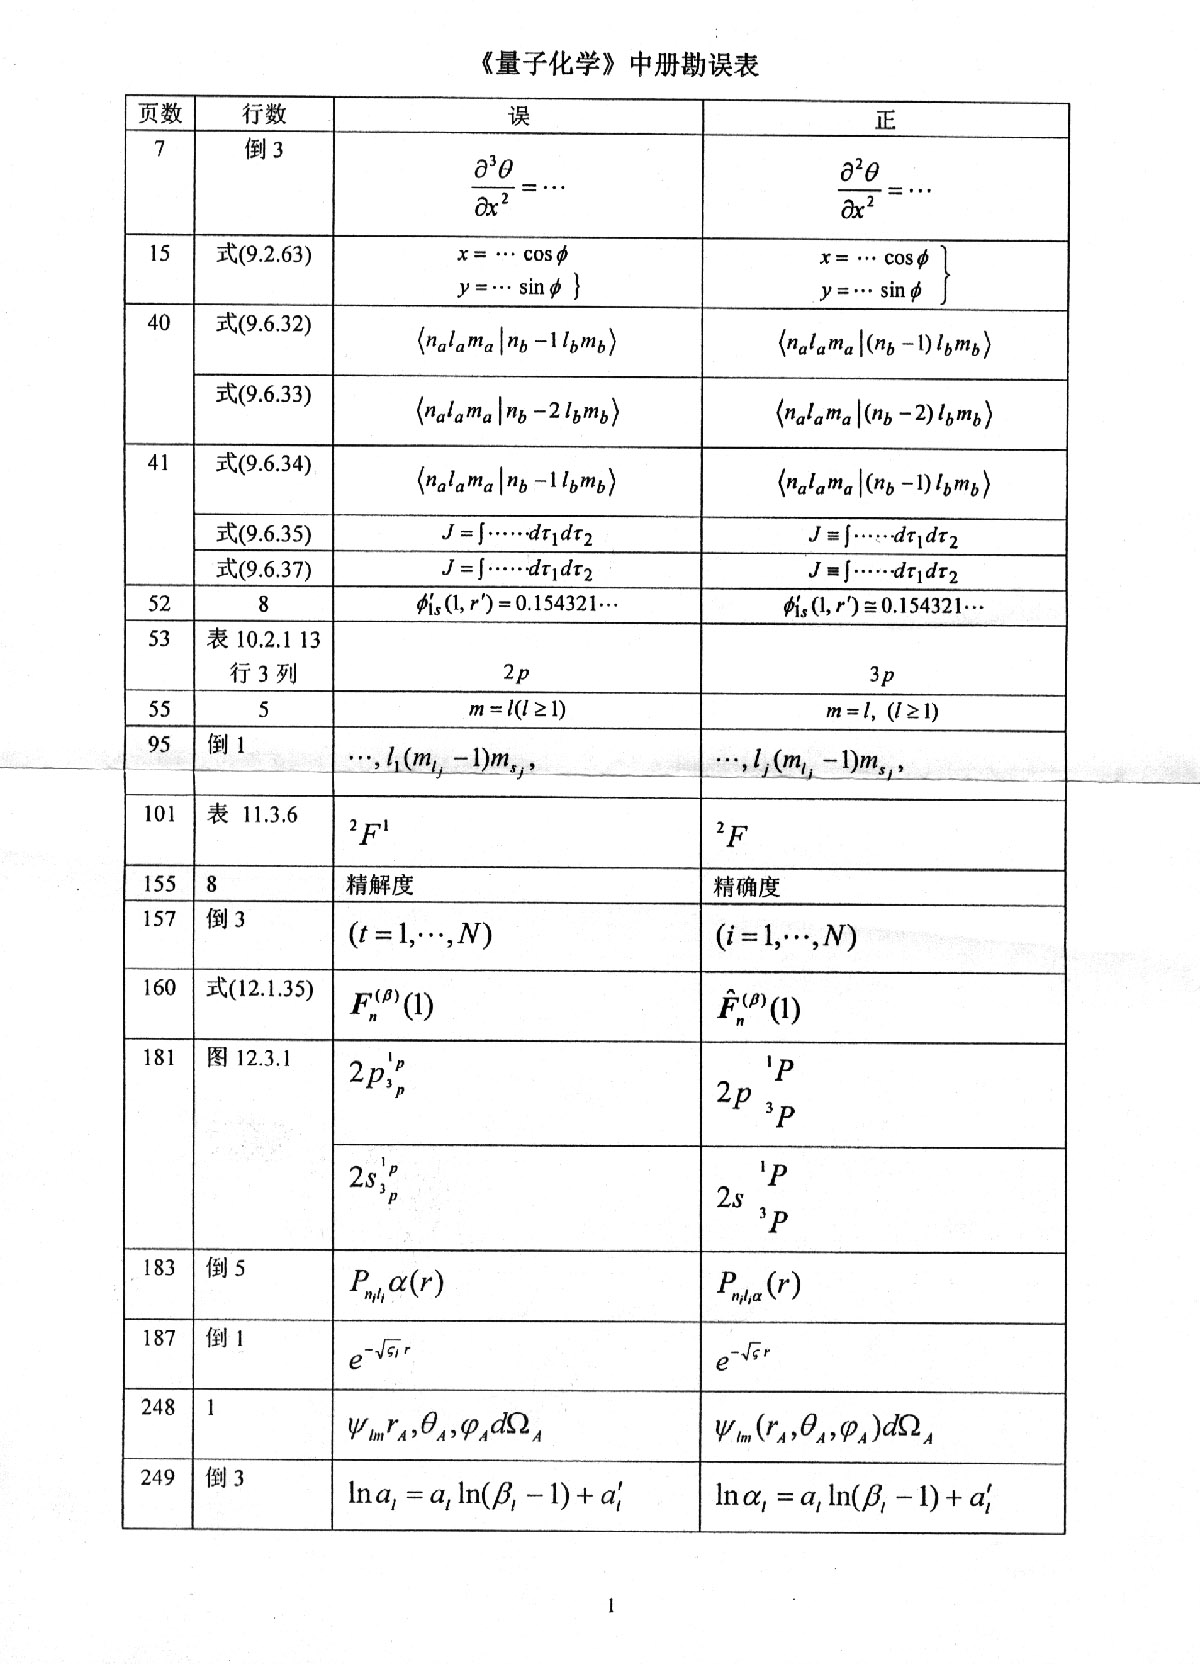 《量子化学》中册勘误表
页数 行数 误 正
7 倒 3 ∂³θ/∂x² = ⋯ ∂²θ/∂x² = ⋯
15 式(9.2.63) x = ⋯ cos ϕ x = ⋯ cos ϕ
y = ⋯ sin ϕ } y = ⋯ sin ϕ }
40 式(9.6.32) ⟨nₐlₐmₐ|n_b −1 l_b m_b⟩ ⟨nₐlₐmₐ|(n_b −1) l_b m_b⟩
式(9.6.33) ⟨nₐlₐmₐ|n_b −2 l_b m_b⟩ ⟨nₐlₐmₐ|(n_b −2) l_b m_b⟩
41 式(9.6.34) ⟨nₐlₐmₐ|n_b −1 l_b m_b⟩ ⟨nₐlₐmₐ|(n_b −1) l_b m_b⟩
式(9.6.35) J = ∫⋯⋯dτ₁dτ₂ J ≡ ∫⋯⋯dτ₁dτ₂
式(9.6.37) J = ∫⋯⋯dτ₁dτ₂ J ≡ ∫⋯⋯dτ₁dτ₂
52 8 ϕ′₁ₛ(1, r′) = 0.154321⋯ ϕ′₁ₛ(1, r′) ≅ 0.154321⋯
53 表 10.2.1 13
行 3 列 2p 3p
55 5 m = l(l ≥ 1) m = l, (l ≥ 1)
95 倒 1 ⋯, l₁(m_{l_j} −1)m_{s_j}, ⋯, l_j(m_{l_j} −1)m_{s_j},
101 表 11.3.6 ²F¹ ²F
155 8 精解度 精确度
157 倒 3 (t = 1,⋯, N) (i = 1,⋯, N)
160 式(12.1.35) F_n^{(β)}(1) F̂_n^{(β)}(1)
181 图 12.3.1 2p ¹p ³p 2p ¹P ³P
2s ¹p ³p 2s ¹P ³P
183 倒 5 P_{n_i l_i} α(r) P_{n_i l_i α}(r)
187 倒 1 e^{−√ς_l r} e^{−√ς r}
248 1 ψ_{lm} r_A, θ_A, φ_A dΩ_A ψ_{lm}(r_A, θ_A, φ_A)dΩ_A
249 倒 3 ln a_l = a_l ln(β_l − 1) + a′_l ln α_l = a_l ln(β_l − 1) + a′_l
1